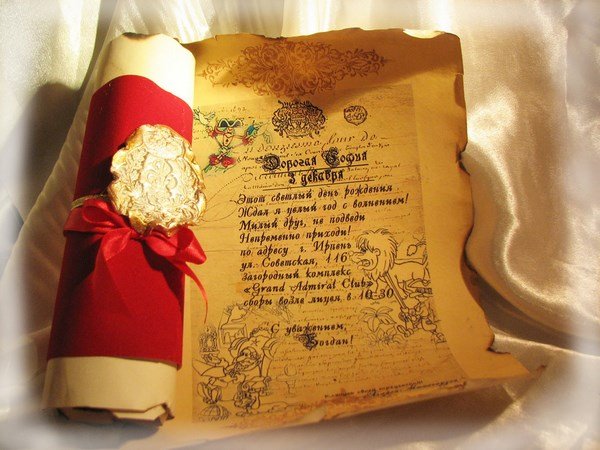 Дорогая София
3 декабря
Этот светлый день рождения
Ждал я целый год с волнением!
Милый друг, не подведи
Непременно приходи!
по адресу г. Ирпень
ул. Советская, 116
Загородный комплекс
«Grand Admiral Club»
сборы возле лицея в 10-30
С уважением,
Богдан!